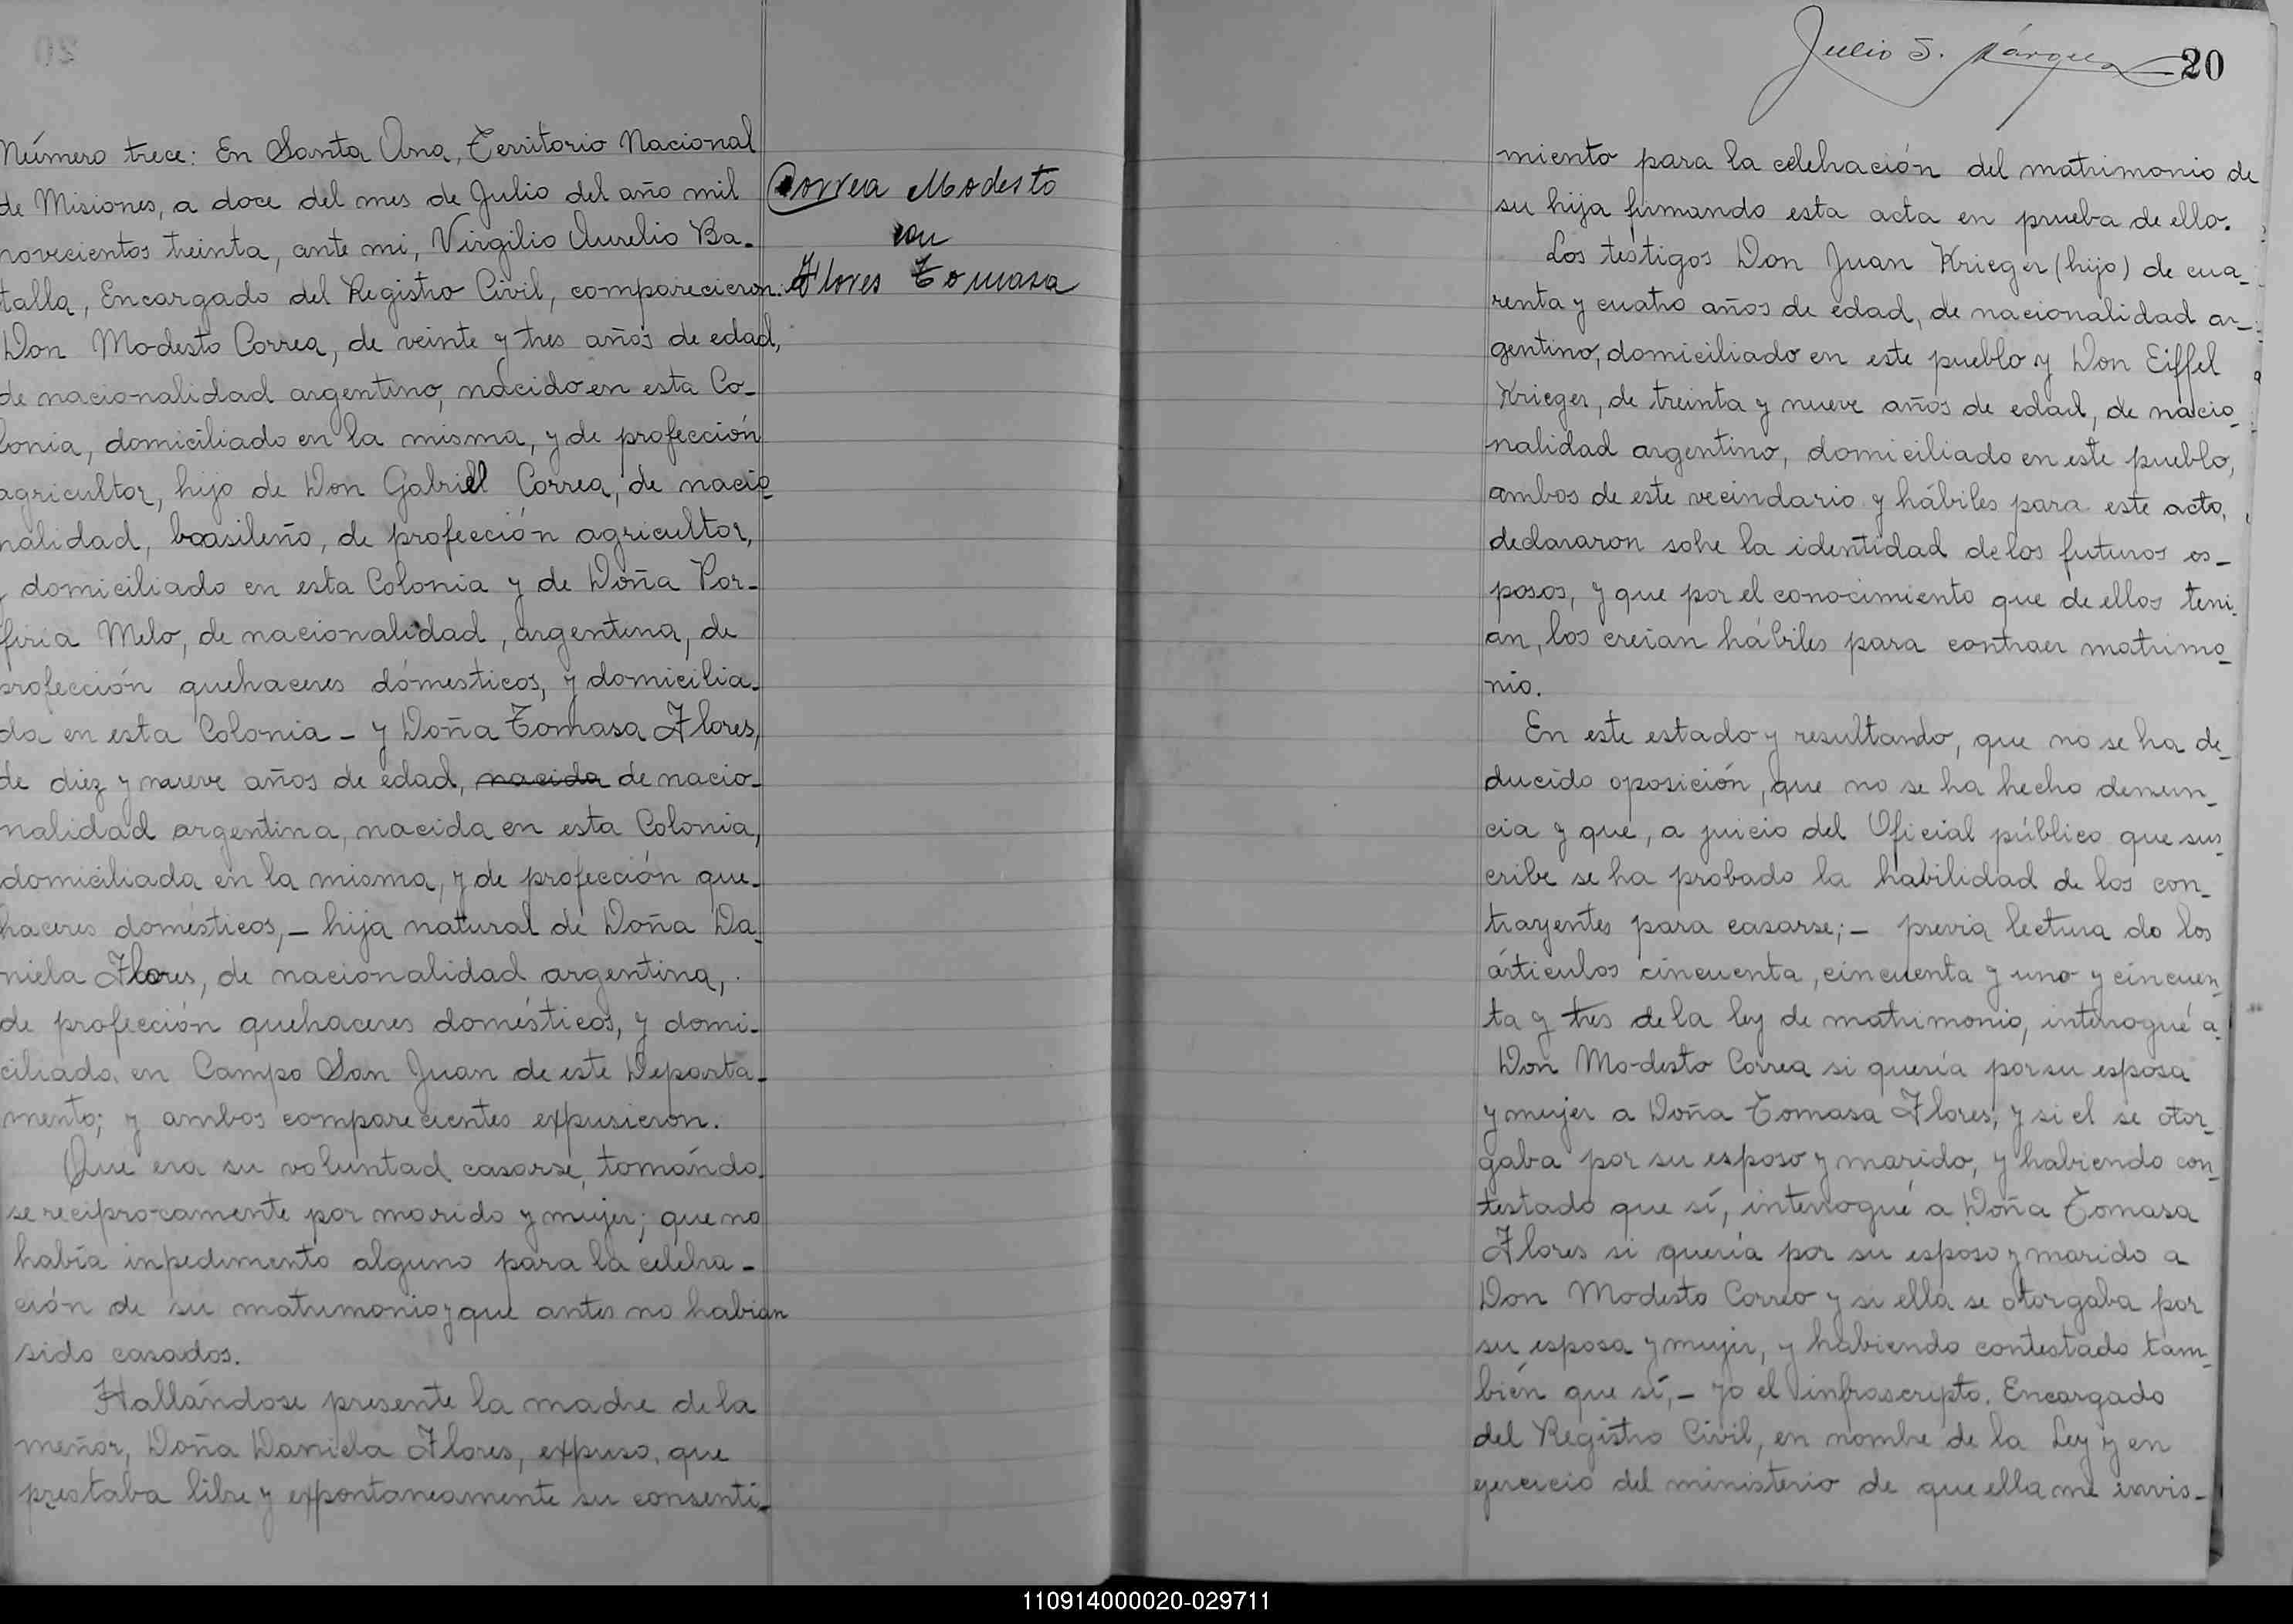 Número trece: En Santa Ana, Territorio Nacional
de Misiones, a doce del mes de Julio del año mil
novecientos treinta, ante mi, Virgilio Aurelio Ba-
talla, Encargado del Registro Civil, comparecieron:
Don Modesto Correa, de veinte y tres años de edad,
de nacionalidad argentino, nacido en esta Co-
lonia, domiciliado en la misma, y de profección
agricultor, hijo de Don Gabriel Correa, de nacio-
nalidad, brasileño, de profección agricultor,
y domiciliado en esta Colonia y de Doña Por-
firia Melo, de nacionalidad, argentina, de
profección quehaceres domésticos, y domicilia-
da en esta Colonia - y Doña Tomasa Flores,
de diez y nueve años de edad, nacida de nacio-
nalidad argentina, nacida en esta Colonia,
domiciliada en la misma, y de profección que-
haceres domésticos, - hija natural de Doña Da-
niela Flores, de nacionalidad argentina,
de profección quehaceres domésticos, y domi-
ciliado en Campo San Juan de este Departa-
mento; y ambos comparecientes expusieron.
Que era su voluntad casarse, tomándo-
se reciprocamente por marido y mujer; que no
había inpedimento alguno para la celebra-
ción de su matrimonio y que antes no habian
sido casados.
Hallándose presente la madre de la
meñor, Doña Daniela Flores, expuso, que
prestaba libre y expontaneamente su consenti-
Correa Modesto
con
Flores Tomasa
Julio S. Márquez
20
miento para la celebración del matrimonio de
su hija firmando esta acta en prueba de ello.
Los testigos Don Juan Krieger (hijo) de cua-
renta y cuatro años de edad, de nacionalidad ar-
gentino, domiciliado en este pueblo y Don Eiffel
Krieger, de treinta y nueve años de edad, de nacio-
nalidad argentino, domiciliado en este pueblo,
ambos de este vecindario y hábiles para este acto,
declararon sobre la identidad de los futuros es-
posos, y que por el conocimiento que de ellos teni-
an, los creian hábiles para contraer matrimo-
nio.
En este estado y resultando, que no se ha de-
ducido oposición, que no se ha hecho denun-
cia y que, a juicio del Oficial público que sus-
cribe se ha probado la habilidad de los con-
trayentes para casarse; - previa lectura de los
árticulos cincuenta, cincuenta y uno y cincuen-
ta y tres de la ley de matrimonio, interrogué a
Don Modesto Correa si quería por su esposa
y mujer a Doña Tomasa Flores, y si el se otor-
gaba por su esposo y marido, y habiendo con-
testado que sí, interrogué a Doña Tomasa
Flores si quería por su esposo y marido a
Don Modesto Correo y si ella se otorgaba por
su esposa y mujer, y habiendo contestado tam-
bién que sí, - yo el infrascripto. Encargado
del Registro Civil, en nombre de la Ley y en
ejercicio del ministerio de que ella me invis-
110914000020-029711